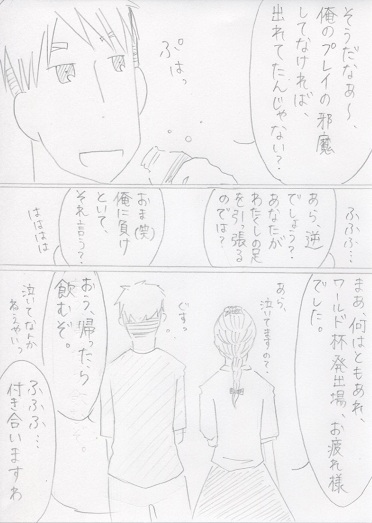 そうだなぁ～、
俺のプレイの邪魔
してなければ、
出れてたんじゃない？
ぷはっ
あら、逆
でしょう？
あなたが
わたくしの足
を引っ張る
のでは？
ふふふ…
おま(笑)
俺に負け
といて、
それ言う？
はははは
まあ、何はともあれ、
ワールド杯発出場、お疲れ様
でした。
あら、
泣いてますの？
ぐすっ
おう、帰ったら
飲むぞ。
泣いてなんか
ねぇやいっ
ふふふ…
付き合いますわ